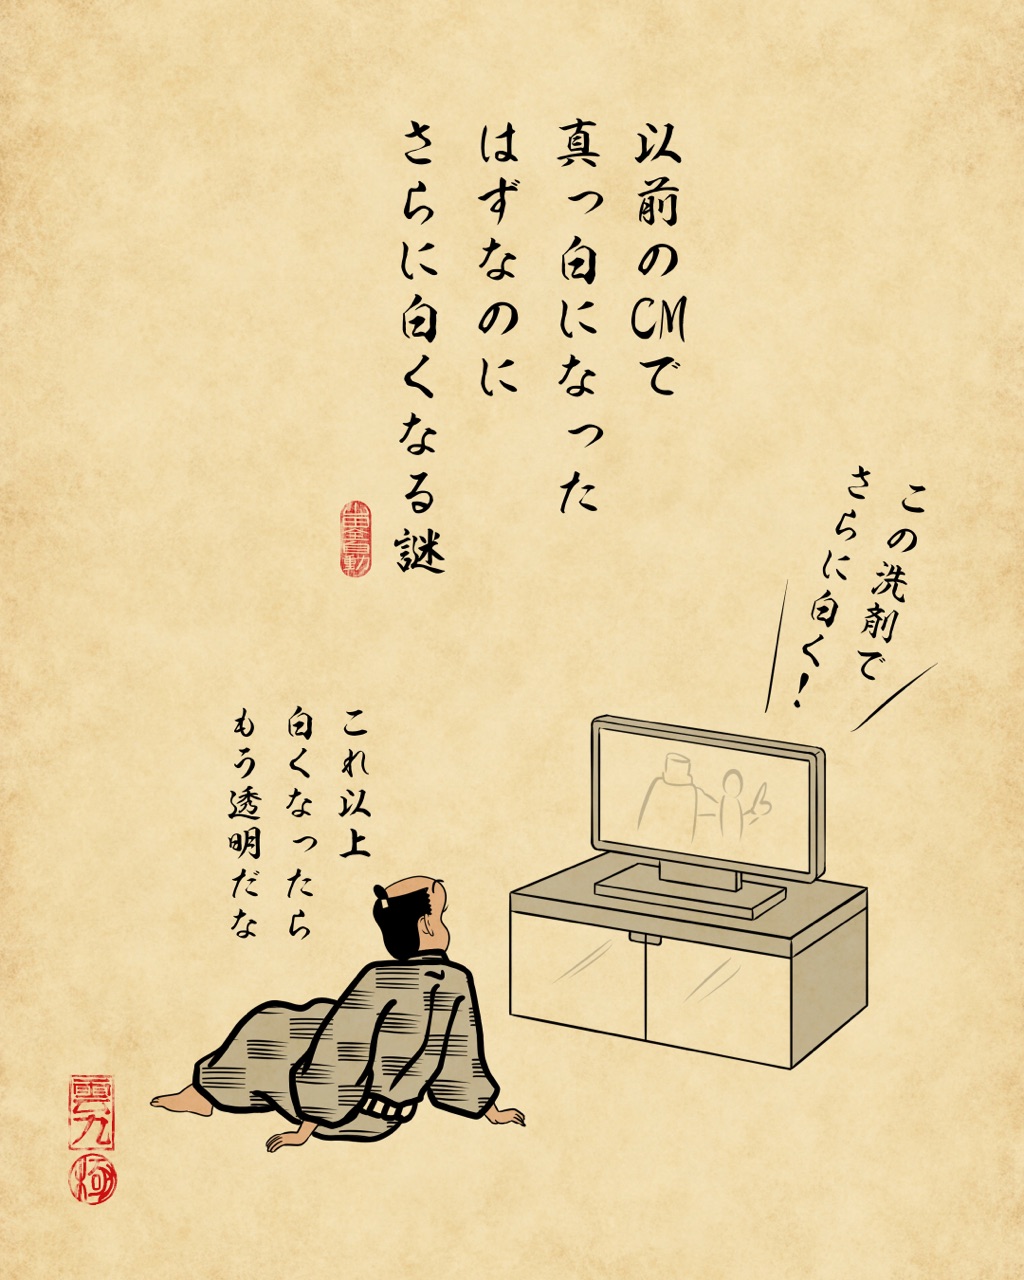 以前のCMで
真っ白になった
はずなのに
さらに白くなる謎
この洗剤で
さらに白く!
これ以上
白くなったら
もう透明だな